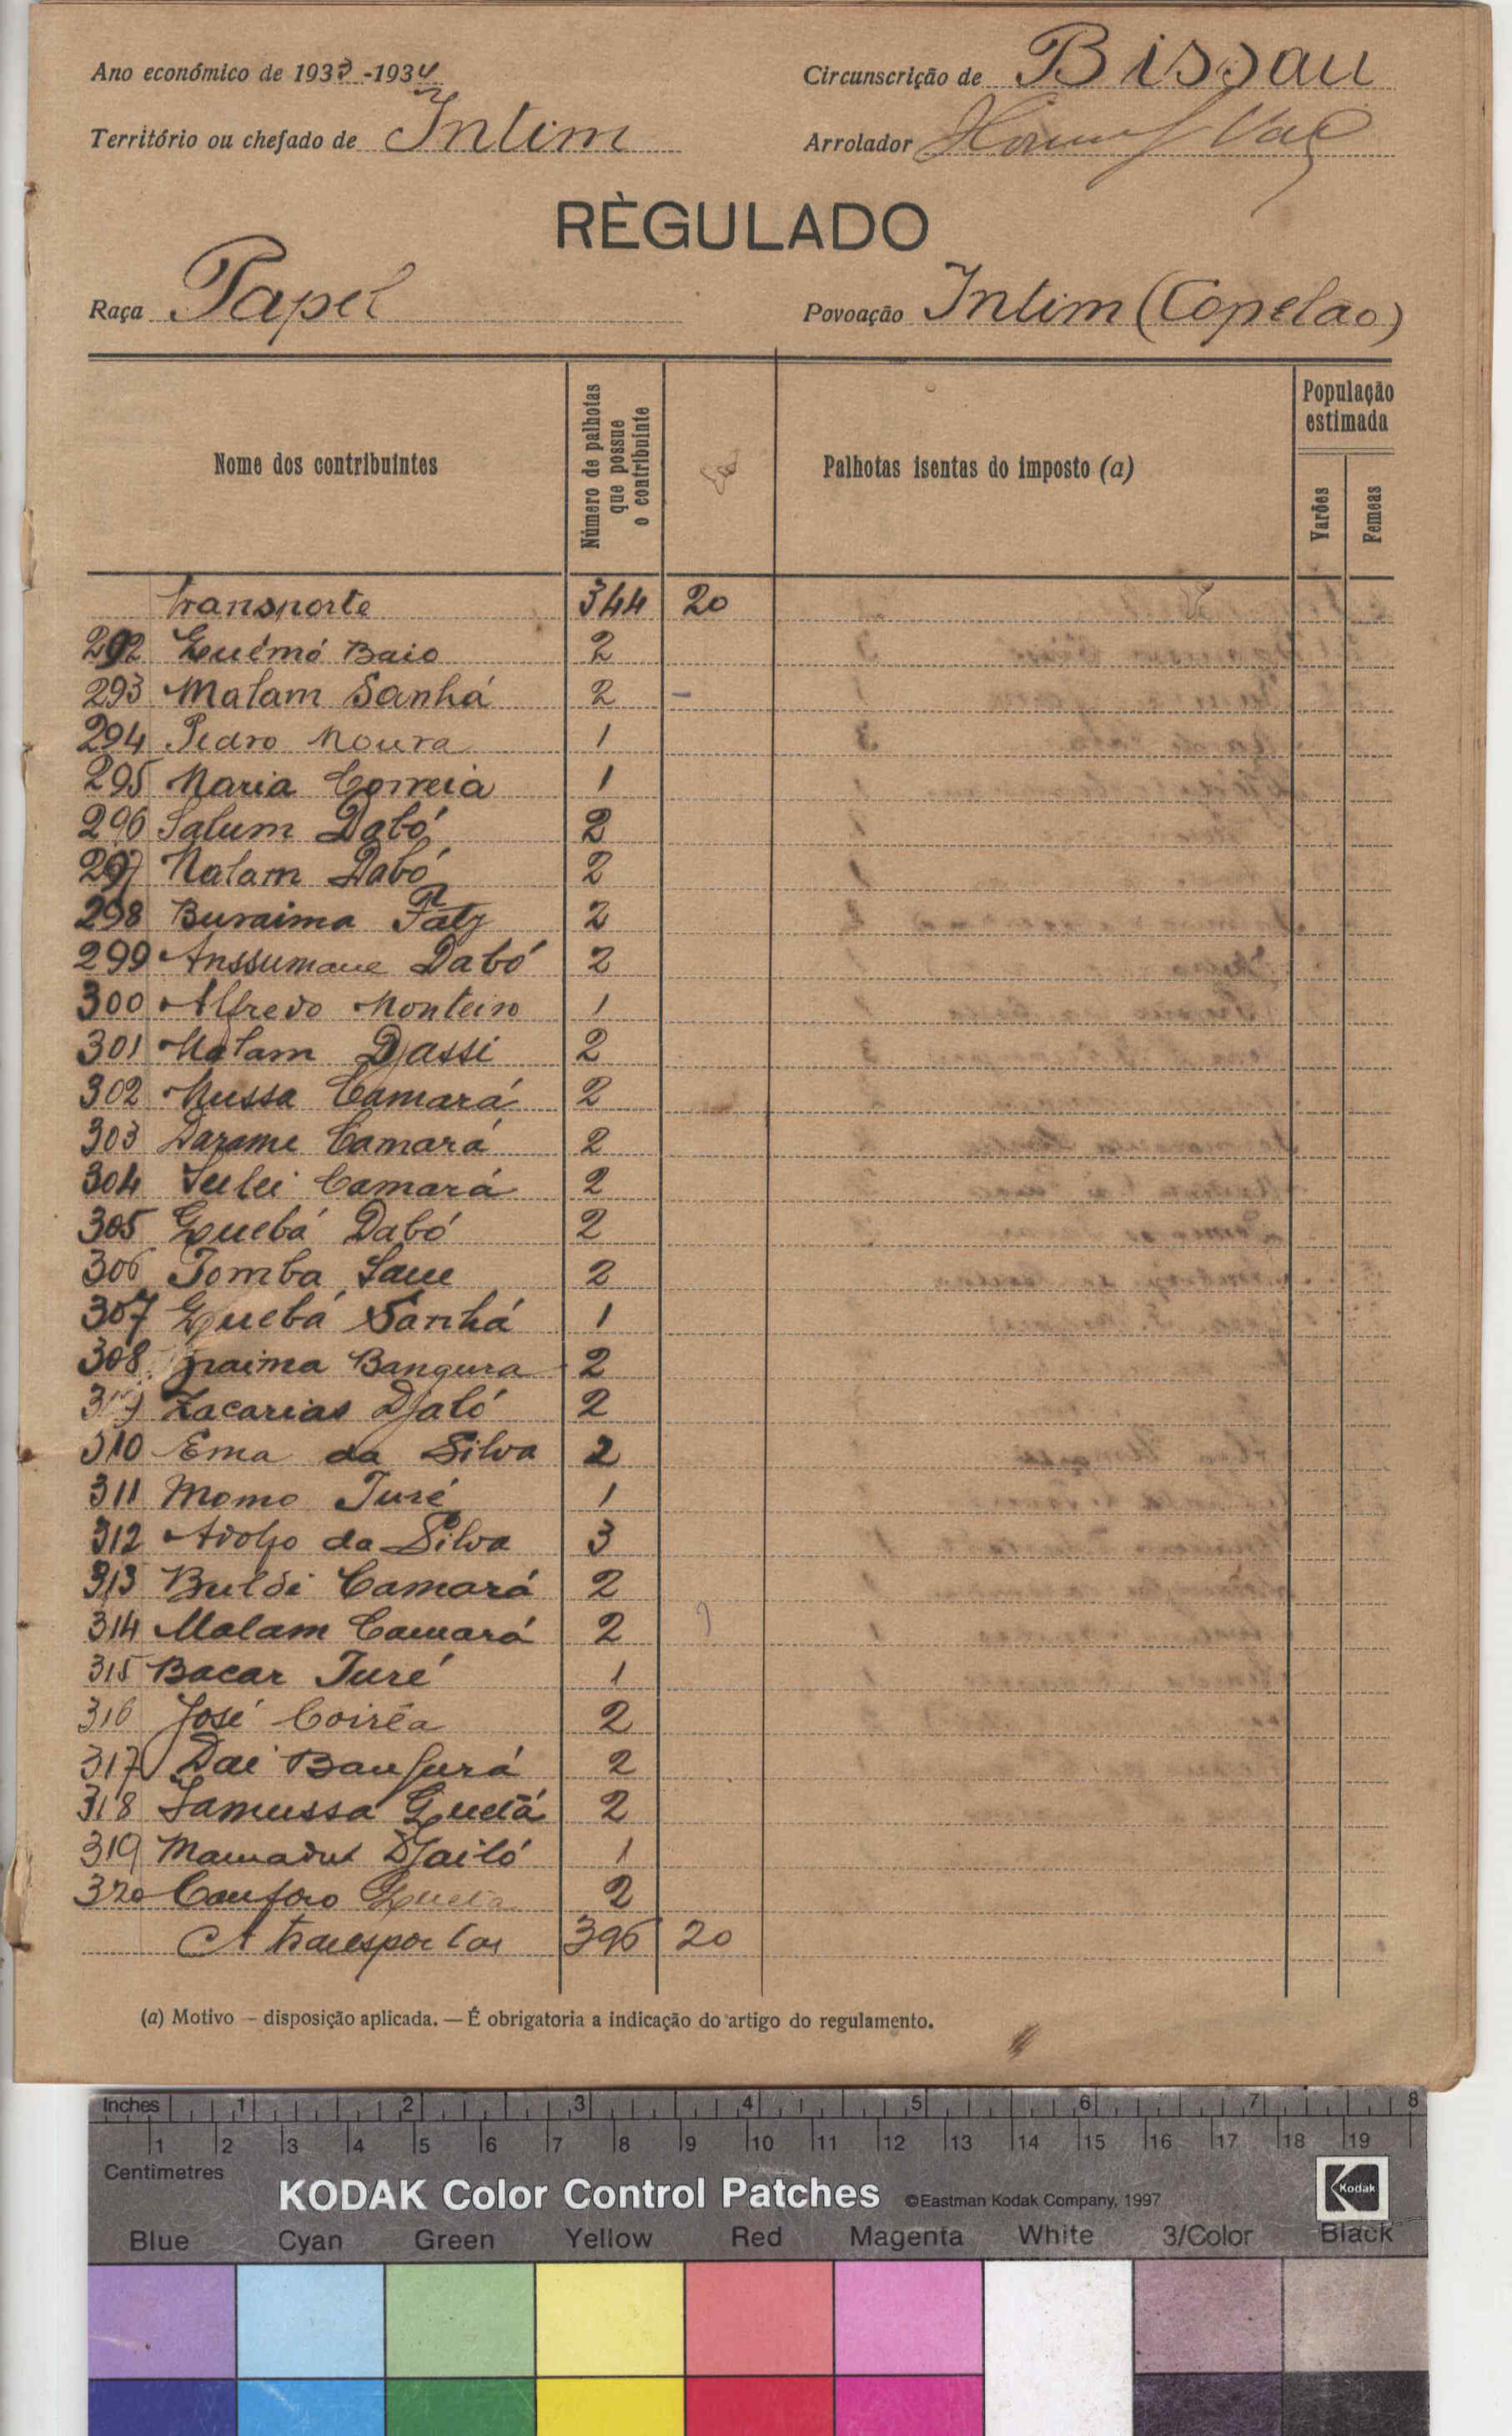 Ano económico de 1933-1934
Circunscrição de Bissau
Território ou chefado de Intim
Arrolador
RÈGULADO
Raça Papel
Povoação Intim (Copelão)
Nome dos contribuintes
Número de palhotas que possue o contribuinte
Palhotas isentas do imposto (a)
População estimada
Varões
Femeas
Transporte 344 20
292 Quémó Baio 2
293 Malam Sanhá 2
294 Pedro Moura 1
295 Maria Correia 1
296 Salum Dabó 2
297 Malam Dabó 2
298 Buraima Faty 2
299 Anssumane Dabó 2
300 Alfredo Monteiro 1
301 Malam Djassi 2
302 Mussa Camará 2
303 Darame Camará 2
304 Sulei Camará 2
305 Quebá Dabó 2
306 Tomba Sane 2
307 Quebá Sanhá 1
308 Braima Bangura 2
309 Zacarias Djaló 2
310 Ema da Silva 2
311 Momo Turé 1
312 Adolfo da Silva 3
313 Buldi Camará 2
314 Malam Camará 2
315 Bacar Turé 1
316 José Coirêa 2
317 Dai Bangurá 2
318 Lamussa Quetá 2
319 Mamadut Djailó 1
320 Queta 2
A transportar 396 20
(a) Motivo — disposição aplicada. — É obrigatoria a indicação do artigo do regulamento.
Inches 1 2 3 4 5 6 7 8
1 2 3 4 5 6 7 8 9 10 11 12 13 14 15 16 17 18 19
Centimetres
KODAK Color Control Patches ©Eastman Kodak Company, 1997 Kodak
Blue Cyan Green Yellow Red Magenta White 3/Color Black